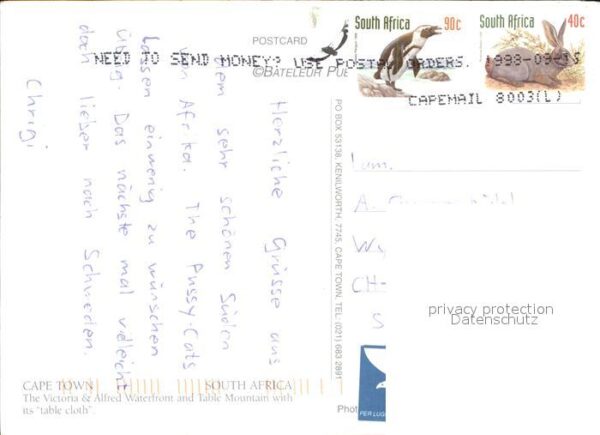 POSTCARD
South Africa 90c
South Africa 40c
NEED TO SEND MONEY? USE POSTAL ORDERS. 1998-09-
CAPEMAIL 8003(L)
©BATELEUR PU
Herzliche Grüsse aus
dem sehr schönen Süden
von Afrika. The Pussy-Cats
lassen einwenig zu wünschen
übrig. Das nächste mal vielleicht
doch lieber nach Schweden.
Chrigi
PO BOX 53138, KENILWORTH, 7745, CAPE TOWN. TEL (021) 683 2891
Fam.
A.
CH-
S
privacy protection
Datenschutz
CAPE TOWN SOUTH AFRICA
The Victoria & Alfred Waterfront and Table Mountain with
its "table cloth".
Phot
PER LUG